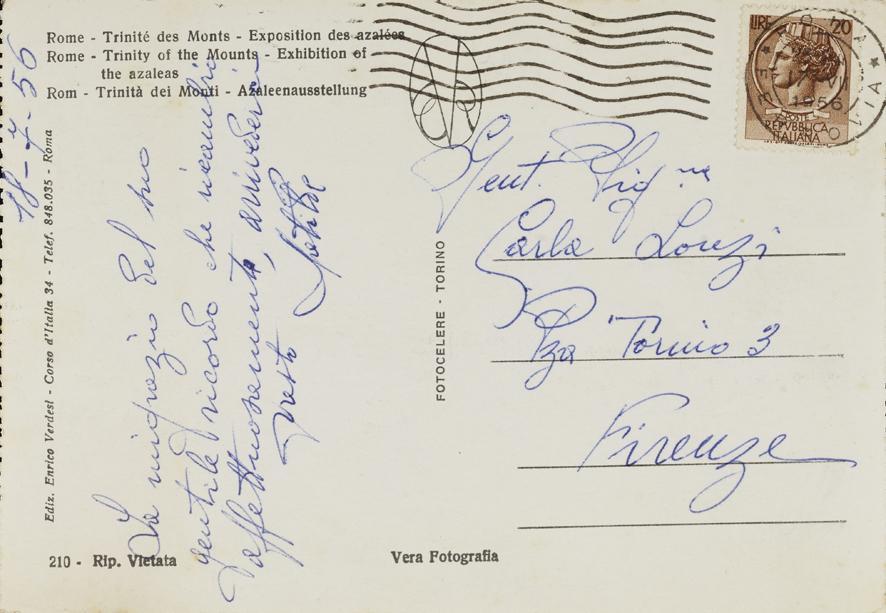 Rome - Trinité des Monts - Exposition des azalées
Rome - Trinity of the Mounts - Exhibition of
the azaleas
Rom - Trinità dei Monti - Azaleenausstellung
18-7-56
Ediz. Enrico Verdesi - Corso d'Italia 34 - Telef. 848.035 - Roma
La ringrazio del suo
gentile ricordo che ricambio
affettuosamente, arrivederci
presto
FOTOCELERE - TORINO
LIRE 20
1956
POSTE
REPVBBLICA
ITALIANA
Gent. Sig.na
Carla Lonzi
Pza Torino 3
Firenze
210 - Rip. Vietata
Vera Fotografia